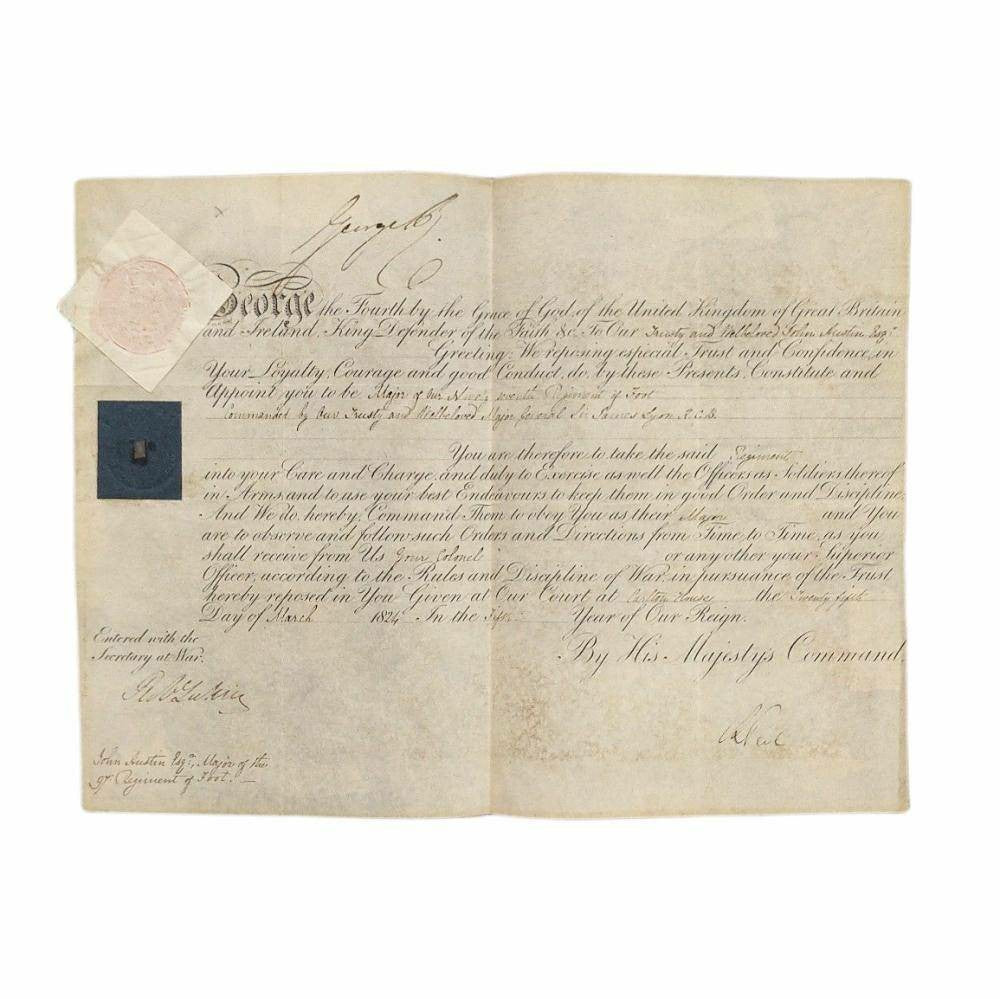 George R.
George the Fourth by the Grace of God, of the United Kingdom of Great Britain
and Ireland, King, Defender of the Faith &c. To Our Trusty and Welbeloved John Austin Esqr.
Greeting: We reposing especial Trust and Confidence in
Your Loyalty, Courage and good Conduct, do, by these Presents, Constitute and
Appoint you to be Major of Our Ninety seventh Regiment of Foot
Commanded by Our Trusty and Welbeloved Major General Sir James Lyon K.C.B.
You are therefore to take the said Regiment
into your Care and Charge, and duly to Exercise as well the Officers as Soldiers thereof
in Arms, and to use your best Endeavours to keep them in good Order and Discipline
And We do, hereby, Command Them to obey You as their Major and You
are to observe and follow such Orders and Directions from Time to Time, as you
shall receive from Us Your Colonel or any other your Superior
Officer, according to the Rules and Discipline of War, in pursuance of the Trust
hereby reposed in You Given at Our Court, at Carlton House the Twenty fifth
Day of March 1824 In the Fifth Year of Our Reign.
Entered with the
Secretary at War.
By His Majesty's Command.
John Austin Esqr., Major of the
97 Regiment of Foot. —